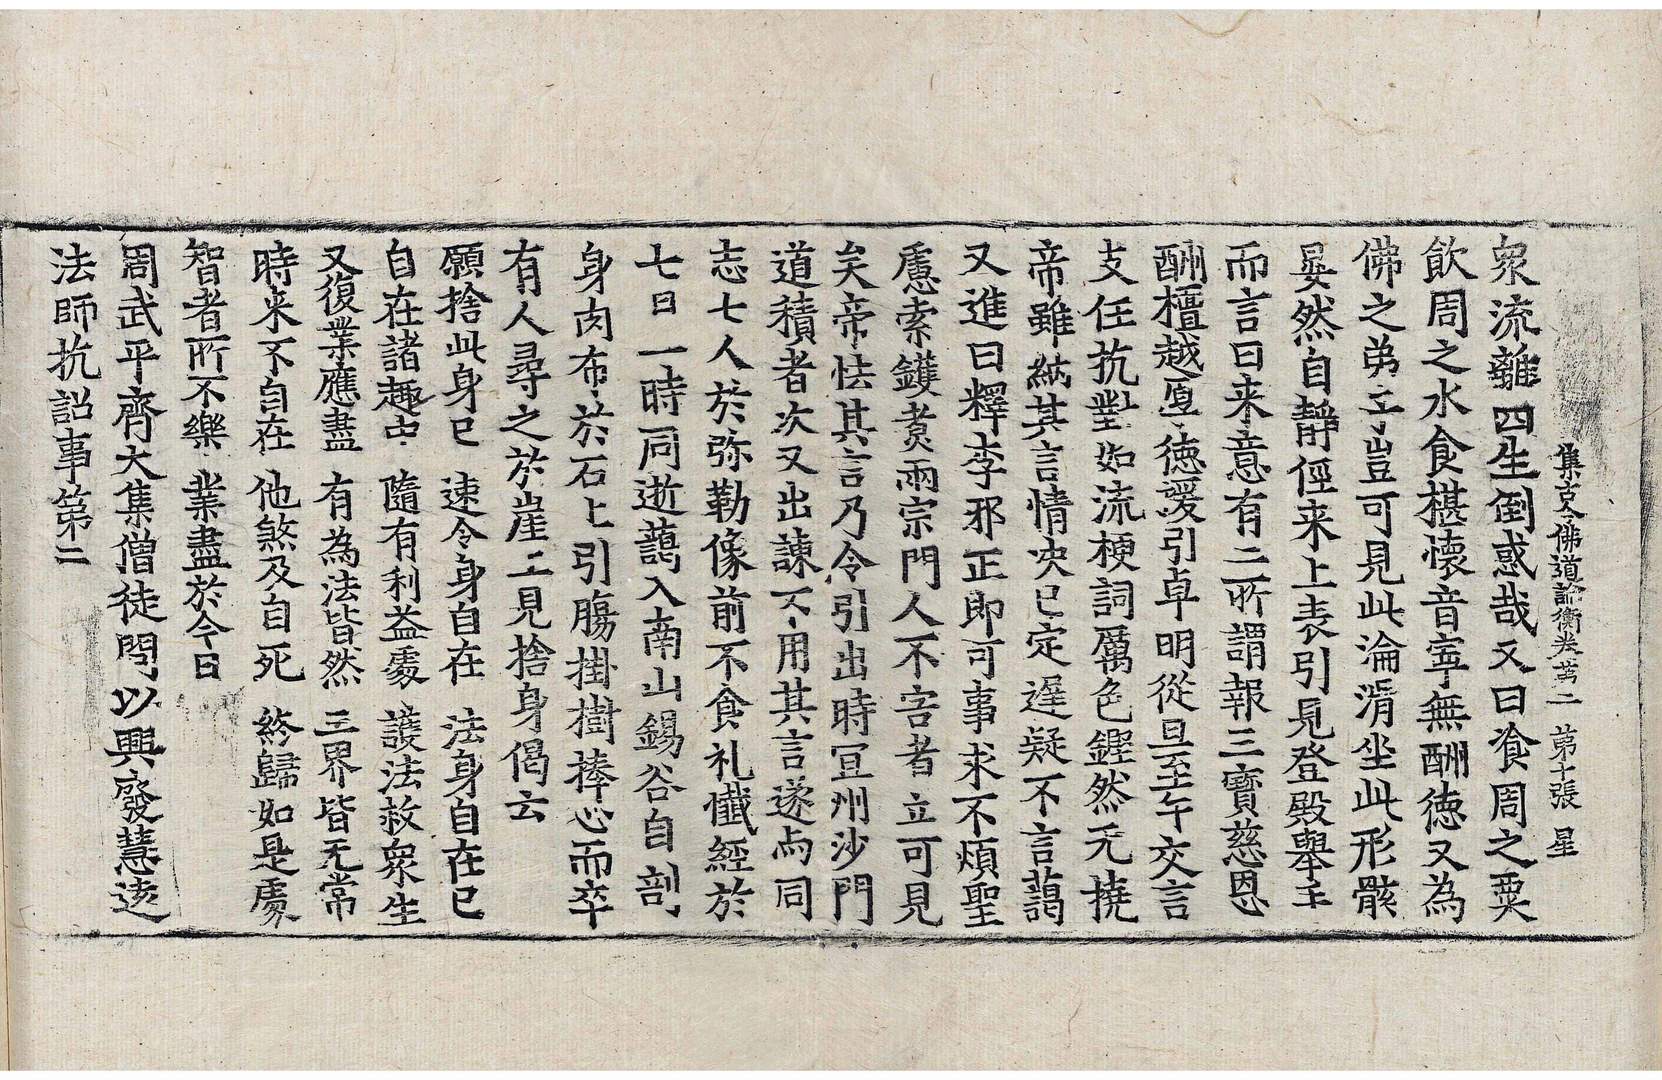 集古今佛道論衡卷第二 第十張 星
衆流離四生倒惑哉又曰飡周之粟
飲周之水食椹懷音寧無酬德又為
佛之弟子豈可見此淪湑坐此形骸
晏然自靜俓来上表引見登殿舉手
而言曰来意有二所謂報三寶慈恩
酬檀越厚德援引卓明從旦至午交言
支任抗對如流梗詞厲色鏗然无撓
帝雖納其言情决已定遅疑不言藹
又進曰釋李邪正即可事求不煩聖
慮索鑊煑兩宗門人不害者立可見
矣帝怯其言乃令引出時宜州沙門
道積者次又出諫不用其言遂與同
志七人於弥勒像前不食礼懺經於
七日一時同逝藹入南山錫谷自剖
身肉布於石上引腸掛樹捧心而卒
有人尋之於崖上見捨身偈云
願捨此身已 速令身自在 法身自在已
自在諸趣中 隨有利益處 護法救衆生
又復業應盡 有為法皆然 三界皆无常
時来不自在 他煞及自死 終歸如是處
智者所不樂 業盡於今日
周武平齊大集僧徒問以興廢慧遠
法師抗詔事第二